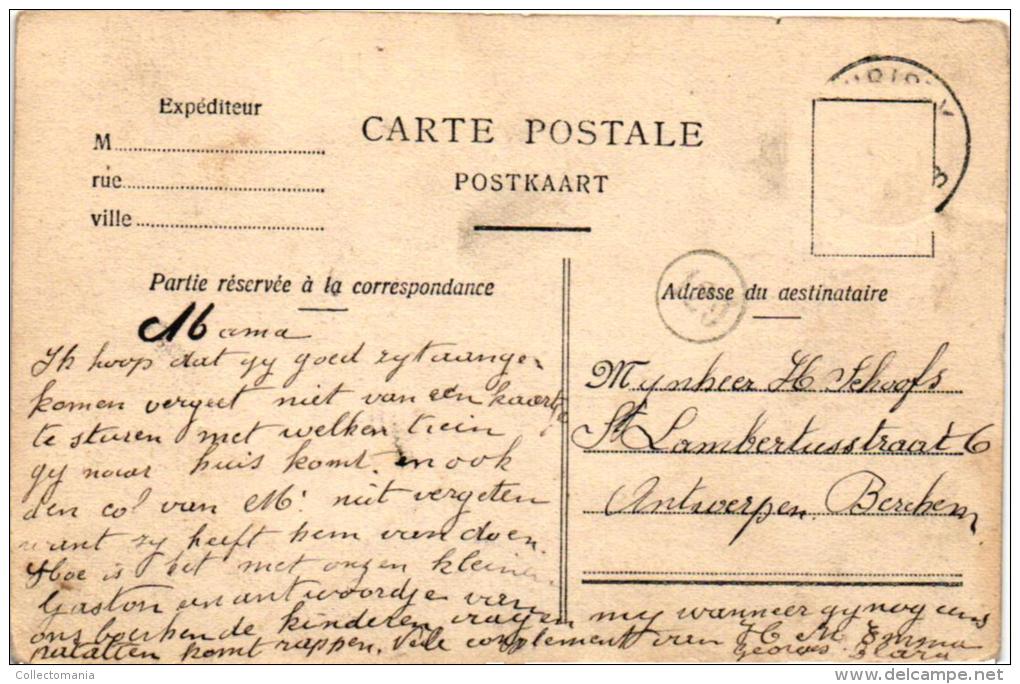 Expéditeur
M
rue
ville
CARTE POSTALE
POSTKAART
Partie réservée à la correspondance
Adresse du destinataire
Mama
Ik hoop dat gy goed zyt aange
komen vergeet niet van een kaartje
te sturen met welken trein
gy naar huis komt. en ook
den col van M. niet vergeten
want zy heeft hem van doen.
Hoe is het met onzen kleinen
Gaston en antwoordje van
ons de kinderen vragen my wanneer gy nog eens
komt Vele complement van H. M. Emma
Georges
Mynheer H Schoofs
St Lambertusstraat 6
Antwerpen Berchem
Collectomania
delcampe.net